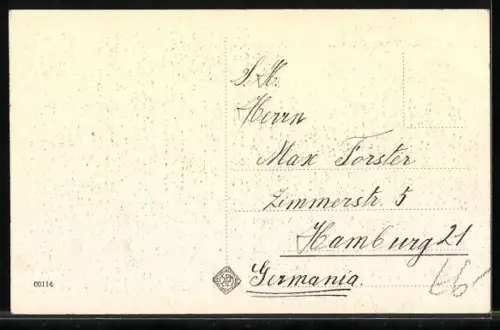 S. H.
Herrn
Max Forster
Zimmerstr. 5
Hamburg 21
Germania.
66-
00114